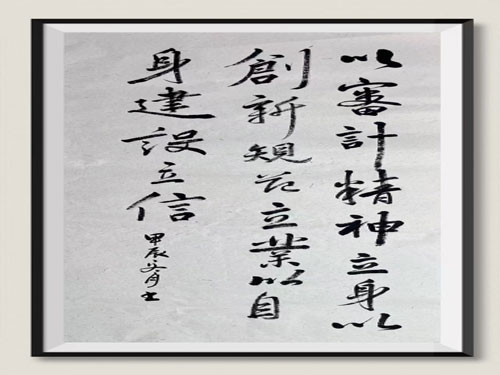 以審計精神立身以
創新規范立業以自
身建設立信
甲辰冬月書